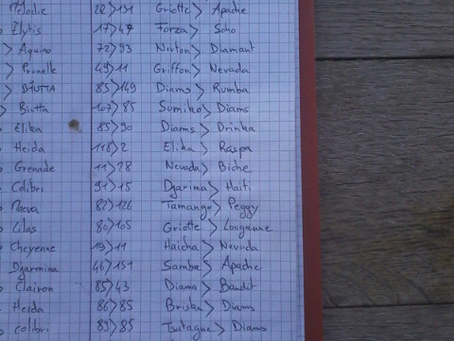 Mélodie 28>151 Griotte> Apache
Zlytis 17>47 Forza> Soho
> Aquino 72>93 Norton> Diamant
> Prunelle 49>11 Griffon> Nevada
> 85>149 Diams> Rumba
> Biutta 107>85 Sumiko> Diams
Elika 85>90 Diams> Drinka
Heida 118>2 Elika> Raspa
Grenade 11>28 Nevada> Biche
Colibri 91>15 Djarima> Haiti
Maeva 82>126 Tamango> Peggy
Lilas 80>105 Griotte> Lougанne
Cheyenne 19>11 Haicha> Nevada
Djarmina 46>151 Samba> Apache
Clairon 85>43 Diams> Bandit
Heida 86>85 Briska> Diams
colibri 89>85 Tsatague> Diams